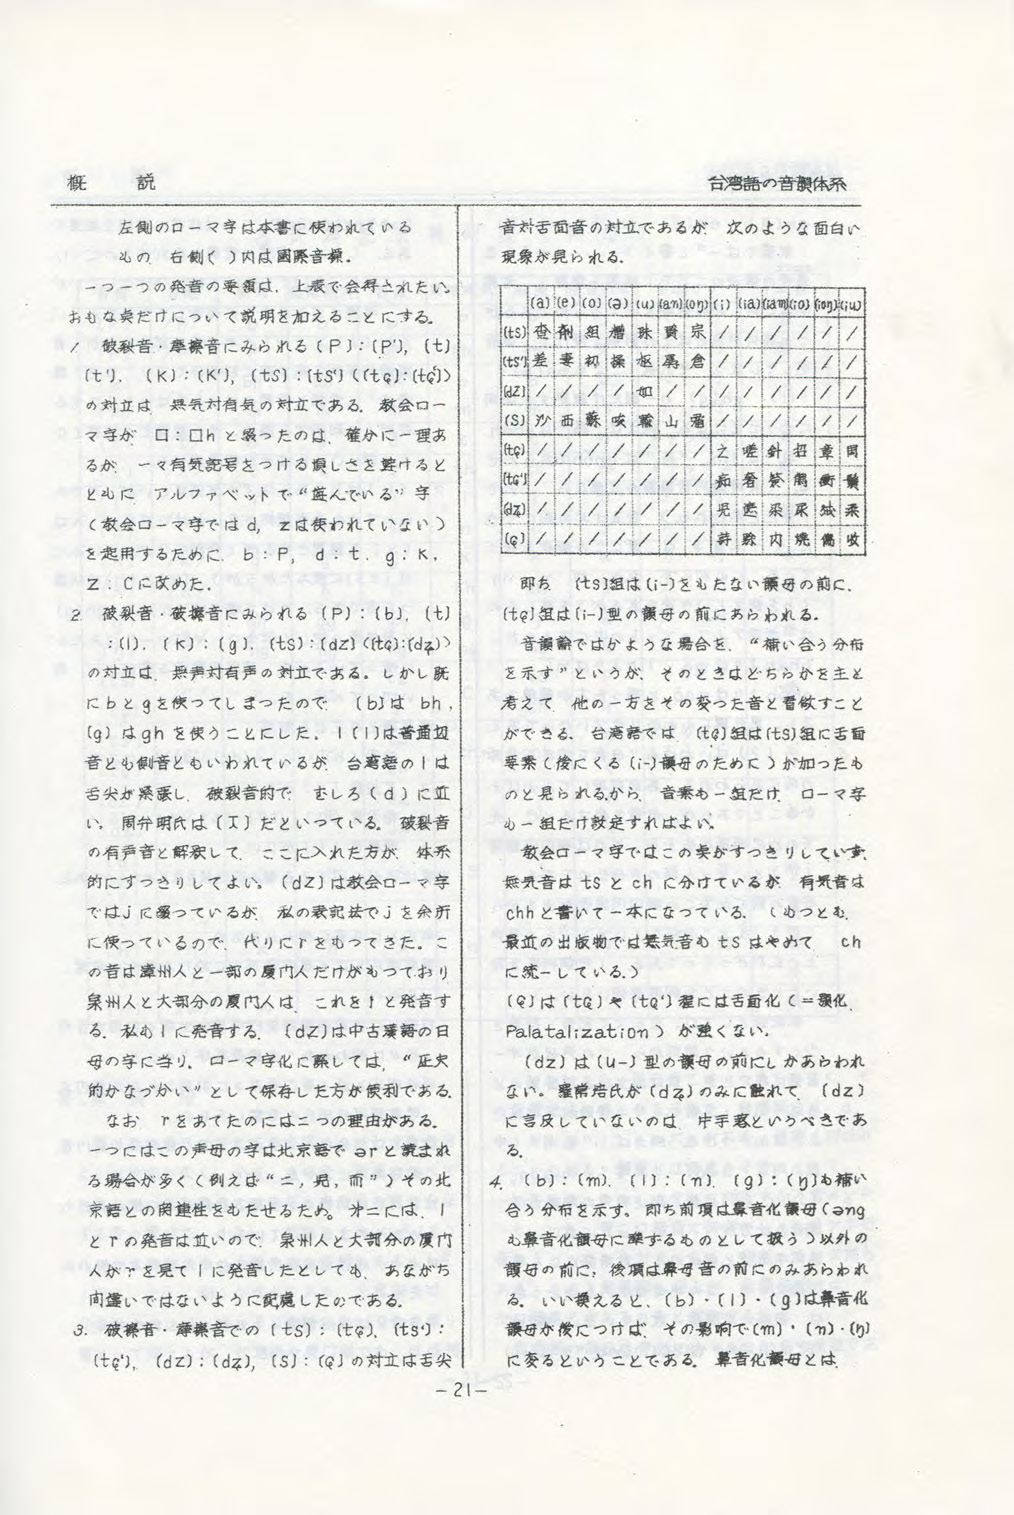 概　説
台湾語の音韻体系
左側のローマ字は本書に使われている
もの. 右側〔 〕内は國際音標.
一つ一つの発音の要領は, 上表で会得されたい。
おもな点だけについて説明を加えることにする。
1. 破裂音・摩擦音にみられる〔P〕:〔P'〕, 〔t〕
〔t'〕, 〔K〕:〔K'〕, 〔tS〕:〔tS'〕(〔tɕ〕:〔tɕ'〕)
の対立は, 無気対有気の対立である. 教会ロー
マ字が 口:口h と綴ったのは, 確かに一理あ
るが, 一々有気記号をつける煩しさを避けると
ともに アルファベットで“遊んでいる”字
(教会ローマ字では d, z は使われていない)
を起用するために, b:P, d:t, g:K,
Z:C に改めた.
2. 破裂音・破擦音にみられる〔P〕:〔b〕, 〔t〕
:〔l〕, 〔K〕:〔g〕, 〔tS〕:〔dZ〕(〔tɕ〕:〔dʑ〕)
の対立は, 無声対有声の対立である。しかし既
に b と g を使ってしまったので 〔b〕は bh,
〔g〕は gh を使うことにした. l〔l〕は普通辺
音とも側音ともいわれているが, 台湾語の l は
舌尖が緊張し, 破裂音的で むしろ〔d〕に近
い. 周弁明氏は〔I〕だといつている. 破裂音
の有声音と解釈して, ここに入れた方が, 体系
的にすっきりしてよい. 〔dZ〕は教会ローマ字
では j に綴っているが, 私の表記法で j を余所
に使っているので, 代りに r をもってきた. こ
の音は漳州人と一部の厦門人だけがもつており
泉州人と大部分の厦門人は, これを l と発音す
る. 私も l に発音する. 〔dZ〕は中古漢語の日
母の字に当り, ローマ字化に際しては, “歴史
的かなづかい”として保存した方が便利である.
なお, r をあてたのには二つの理由がある.
一つにはこの声母の字は北京語で ər と読まれ
る場合が多く(例えば“二, 児, 而”)その北
京語との関連性をもたせるため. 才二には, l
と r の発音は近いので, 泉州人と大部分の厦門
人が r を見て l に発音したとしても, あながち
間違いではないように配慮したのである.
3. 破擦音・摩擦音での〔tS〕:〔tɕ〕, 〔tS'〕:
〔tɕ'〕, 〔dZ〕:〔dʑ〕, 〔S〕:〔ɕ〕の対立は舌尖
音対舌面音の対立であるが, 次のような面白い
現象が見られる.
〔a〕〔e〕〔o〕〔ə〕〔u〕〔am〕〔oŋ〕〔i〕〔ia〕〔iam〕〔io〕〔ioŋ〕〔iu〕
〔tS〕 査 劑 組 憎 珠 簪 宗 / / / / / /
〔tS'〕 差 妻 初 操 枢 倉 / / / / / /
〔dZ〕 / / / / 如 / / / / / / / /
〔S〕 沙 西 蘇 山 / / / / / /
〔tɕ〕 / / / / / / / 之 嗟 針 招 章 周
〔tɕ'〕 / / / / / / / 痴 奢
〔dʑ〕 / / / / / / / 児 遮 尿 柔
〔ɕ〕 / / / / / / / 詩 賒 燒 傷 收
即ち, 〔tS〕組は〔i-〕をもたない韻母の前に,
〔tɕ〕組は〔i-〕型の韻母の前にあらわれる.
音韻論ではかような場合を, “補い合う分布
を示す”というが, そのときはどちらかを主と
考えて, 他の一方をその変った音と看做すこと
ができる. 台湾語では, 〔tɕ〕組は〔tS〕組に舌面
要素(後にくる〔i-〕韻母のために)が加ったも
のと見られるから, 音素も一組だけ, ローマ字
も一組だけ設定すればよい.
教会ローマ字ではこの点がすっきりしていず,
無気音は ts と ch に分けているが, 有気音は
chh と書いて一本になっている. (もつとも,
最近の出版物では無気音も ts はやめて ch
に統一している.)
〔ɕ〕は〔tɕ〕や〔tɕ'〕程には舌面化(=顎化,
Palatalization)が強くない.
〔dz〕は〔u-〕型の韻母の前にしかあらわれ
ない. 羅常培氏が〔dʑ〕のみに触れて, 〔dz〕
に言及していないのは, 片手落というべきであ
る.
4. 〔b〕:〔m〕, 〔l〕:〔n〕, 〔g〕:〔ŋ〕も補い
合う分布を示す. 即ち前項は鼻音化韻母(əng
も鼻音化韻母に準ずるものとして扱う)以外の
韻母の前に, 後項は鼻母音の前にのみあらわれ
る. いい換えると, 〔b〕・〔l〕・〔g〕は鼻音化
韻母が後につけば, その影响で〔m〕・〔n〕・〔ŋ〕
に変るということである. 鼻音化韻母とは,
-21-